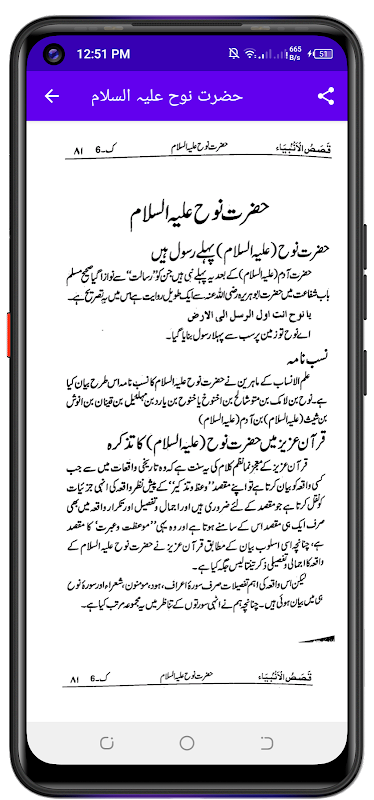 12:51 PM
665
B/s
51
حضرت نوح علیہ السلام
قَصَصُ الْاَنْبِیَاء
حضرت نوح علیہ السلام
ک۔6 ۸۱
حضرت نوح علیہ السلام
حضرت نوح (علیہ السلام) پہلے رسول ہیں
حضرت آدم (علیہ السلام) کے بعد یہ پہلے نبی ہیں جن کو ”رسالت“ سے نوازا گیا صحیح مسلم
باب شفاعت میں حضرت ابو ہریرہ رضی اللہ عنہ سے ایک طویل روایت ہے اس میں یہ تصریح ہے۔
یا نوح انت اول الرسل الی الارض
اے نوح تو زمین پر سب سے پہلا رسول بنایا گیا۔
نسب نامہ
علم الانساب کے ماہرین نے حضرت نوح علیہ السلام کا نسب نامہ اس طرح بیان کیا
ہے۔ نوح بن لامک بن متوشالخ بن اخنوخ یا خنوخ بن یارد بن مہلئیل بن قینان بن انوش
بن شیث (علیہ السلام) بن آدم (علیہ السلام)
قرآن عزیز میں حضرت نوح (علیہ السلام) کا تذکرہ
قرآن عزیز کے معجز نما نظم کلام کی یہ سنت ہے کہ وہ تاریخی واقعات میں سے جب
کسی واقعہ کو بیان کرتا ہے تو اپنے مقصد ”وعظ و تذکیر“ کے پیش نظر واقعہ کی انہی جزئیات
کو نقل کرتا ہے جو مقصد کے لئے ضروری ہیں اور اجمال و تفصیل اور تکرار واقعہ میں بھی
صرف ایک ہی مقصد اس کے سامنے ہوتا ہے اور وہ یہی ”موعظت و عبرت“ کا مقصد
ہے، چنانچہ اسی اسلوب بیان کے مطابق قرآن عزیز نے حضرت نوح علیہ السلام کے
واقعہ کا اجمالی و تفصیلی ذکر تینتالیس جگہ کیا ہے۔
لیکن اس واقعہ کی اہم تفصیلات صرف سورۂ اعراف، ہود، مومنون، شعراء اور سورۂ نوح
ہی میں بیان ہوئی ہیں۔ چنانچہ ہم نے انہی سورتوں کے تناظر میں یہ مجموعہ مرتب کیا ہے۔
قَصَصُ الْاَنْبِیَاء
حضرت نوح علیہ السلام
ک۔6 ۸۱